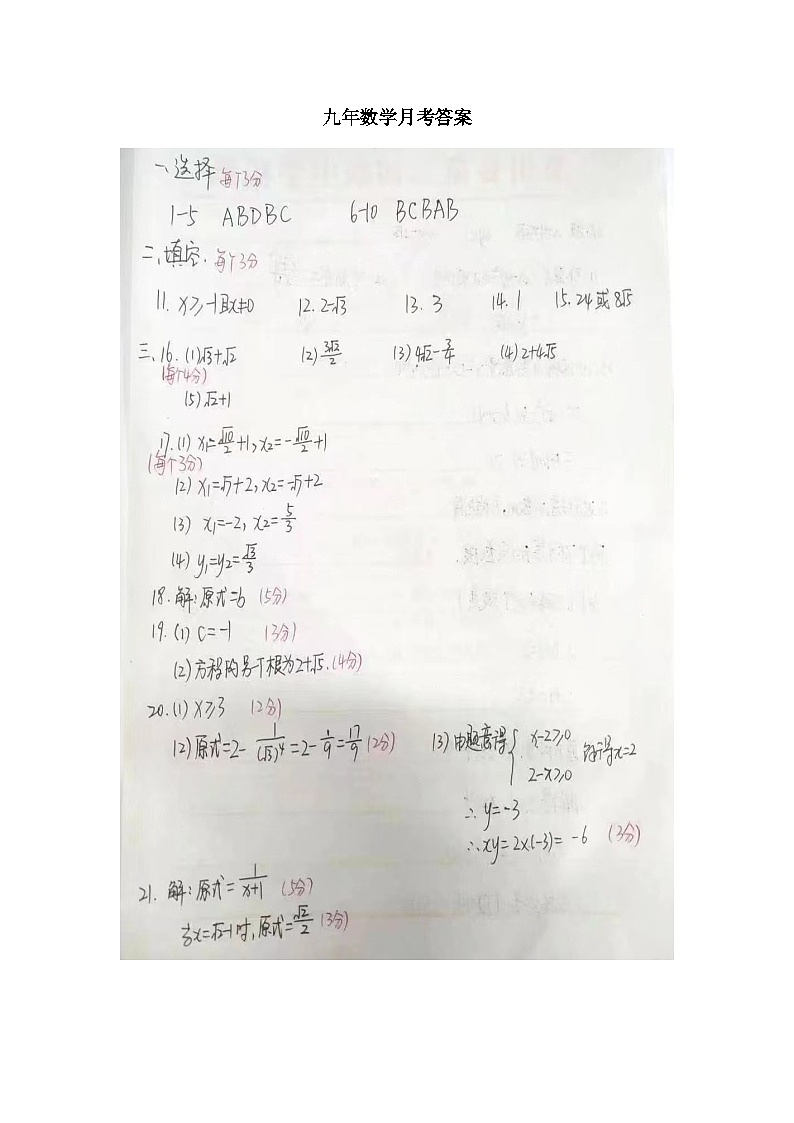 九年数学月考答案
一、选择 每个3分
1-5 ABDBC 6-10 BCBAB
二、填空. 每个3分
11. x≥-1且x≠0 12. 2-√3 13. 3 14. 1 15. 24或8√5
三、16. (1) √3+√2 (2) 3√2/2 (3) 4√2-3/4 (4) 2+4√5
(每个4分)
(5) √2+1
17. (1) x₁=√10/2+1, x₂=-√10/2+1
(每个3分)
(2) x₁=√7+2, x₂=-√7+2
(3) x₁=-2, x₂=5/3
(4) y₁=y₂=√3/3
18. 解:原式=6 (5分)
19. (1) C=-1 (3分)
(2) 方程的另一个根为2+√5. (4分)
20. (1) x≥3 (2分)
(2) 原式=2-1/(√3)⁴=2-1/9=17/9 (2分)
(3) 由题意得{x-2≥0
2-x≥0 解得x=2
∴y=-3
∴xy=2×(-3)=-6 (3分)
21. 解:原式=1/(x+1) (5分)
当x=√2-1时,原式=√2/2 (3分)